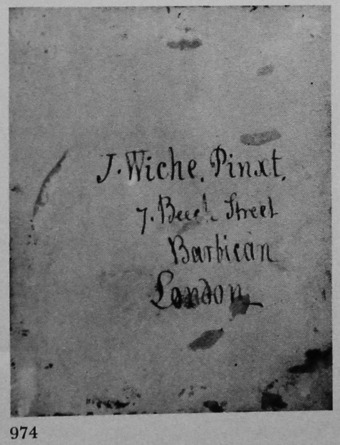 J. Wiche, Pinxt,
7. Beech Street
Barbican
London
974